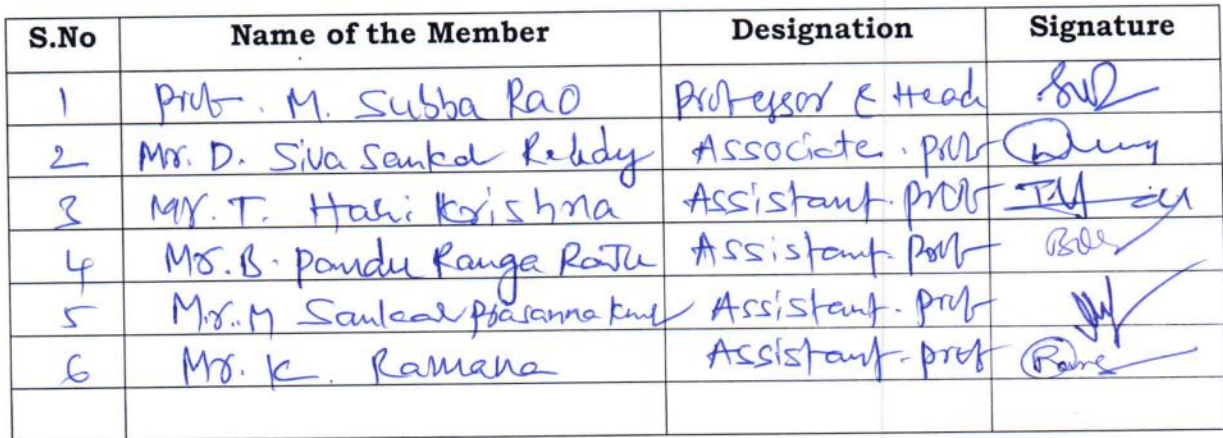 S.No Name of the Member Designation Signature
1 Prof. M. Subba Rao Professor & Head
2 Mr. D. Siva Sankar Reddy Associate. prof
3 Mr. T. Hari Krishna Assistant. prof
4 Mr. B. Pandu Ranga Raju Assistant. prof
5 Mr. M Sankar Prasanna Assistant. prof
6 Mr. K. Ramana Assistant. prof